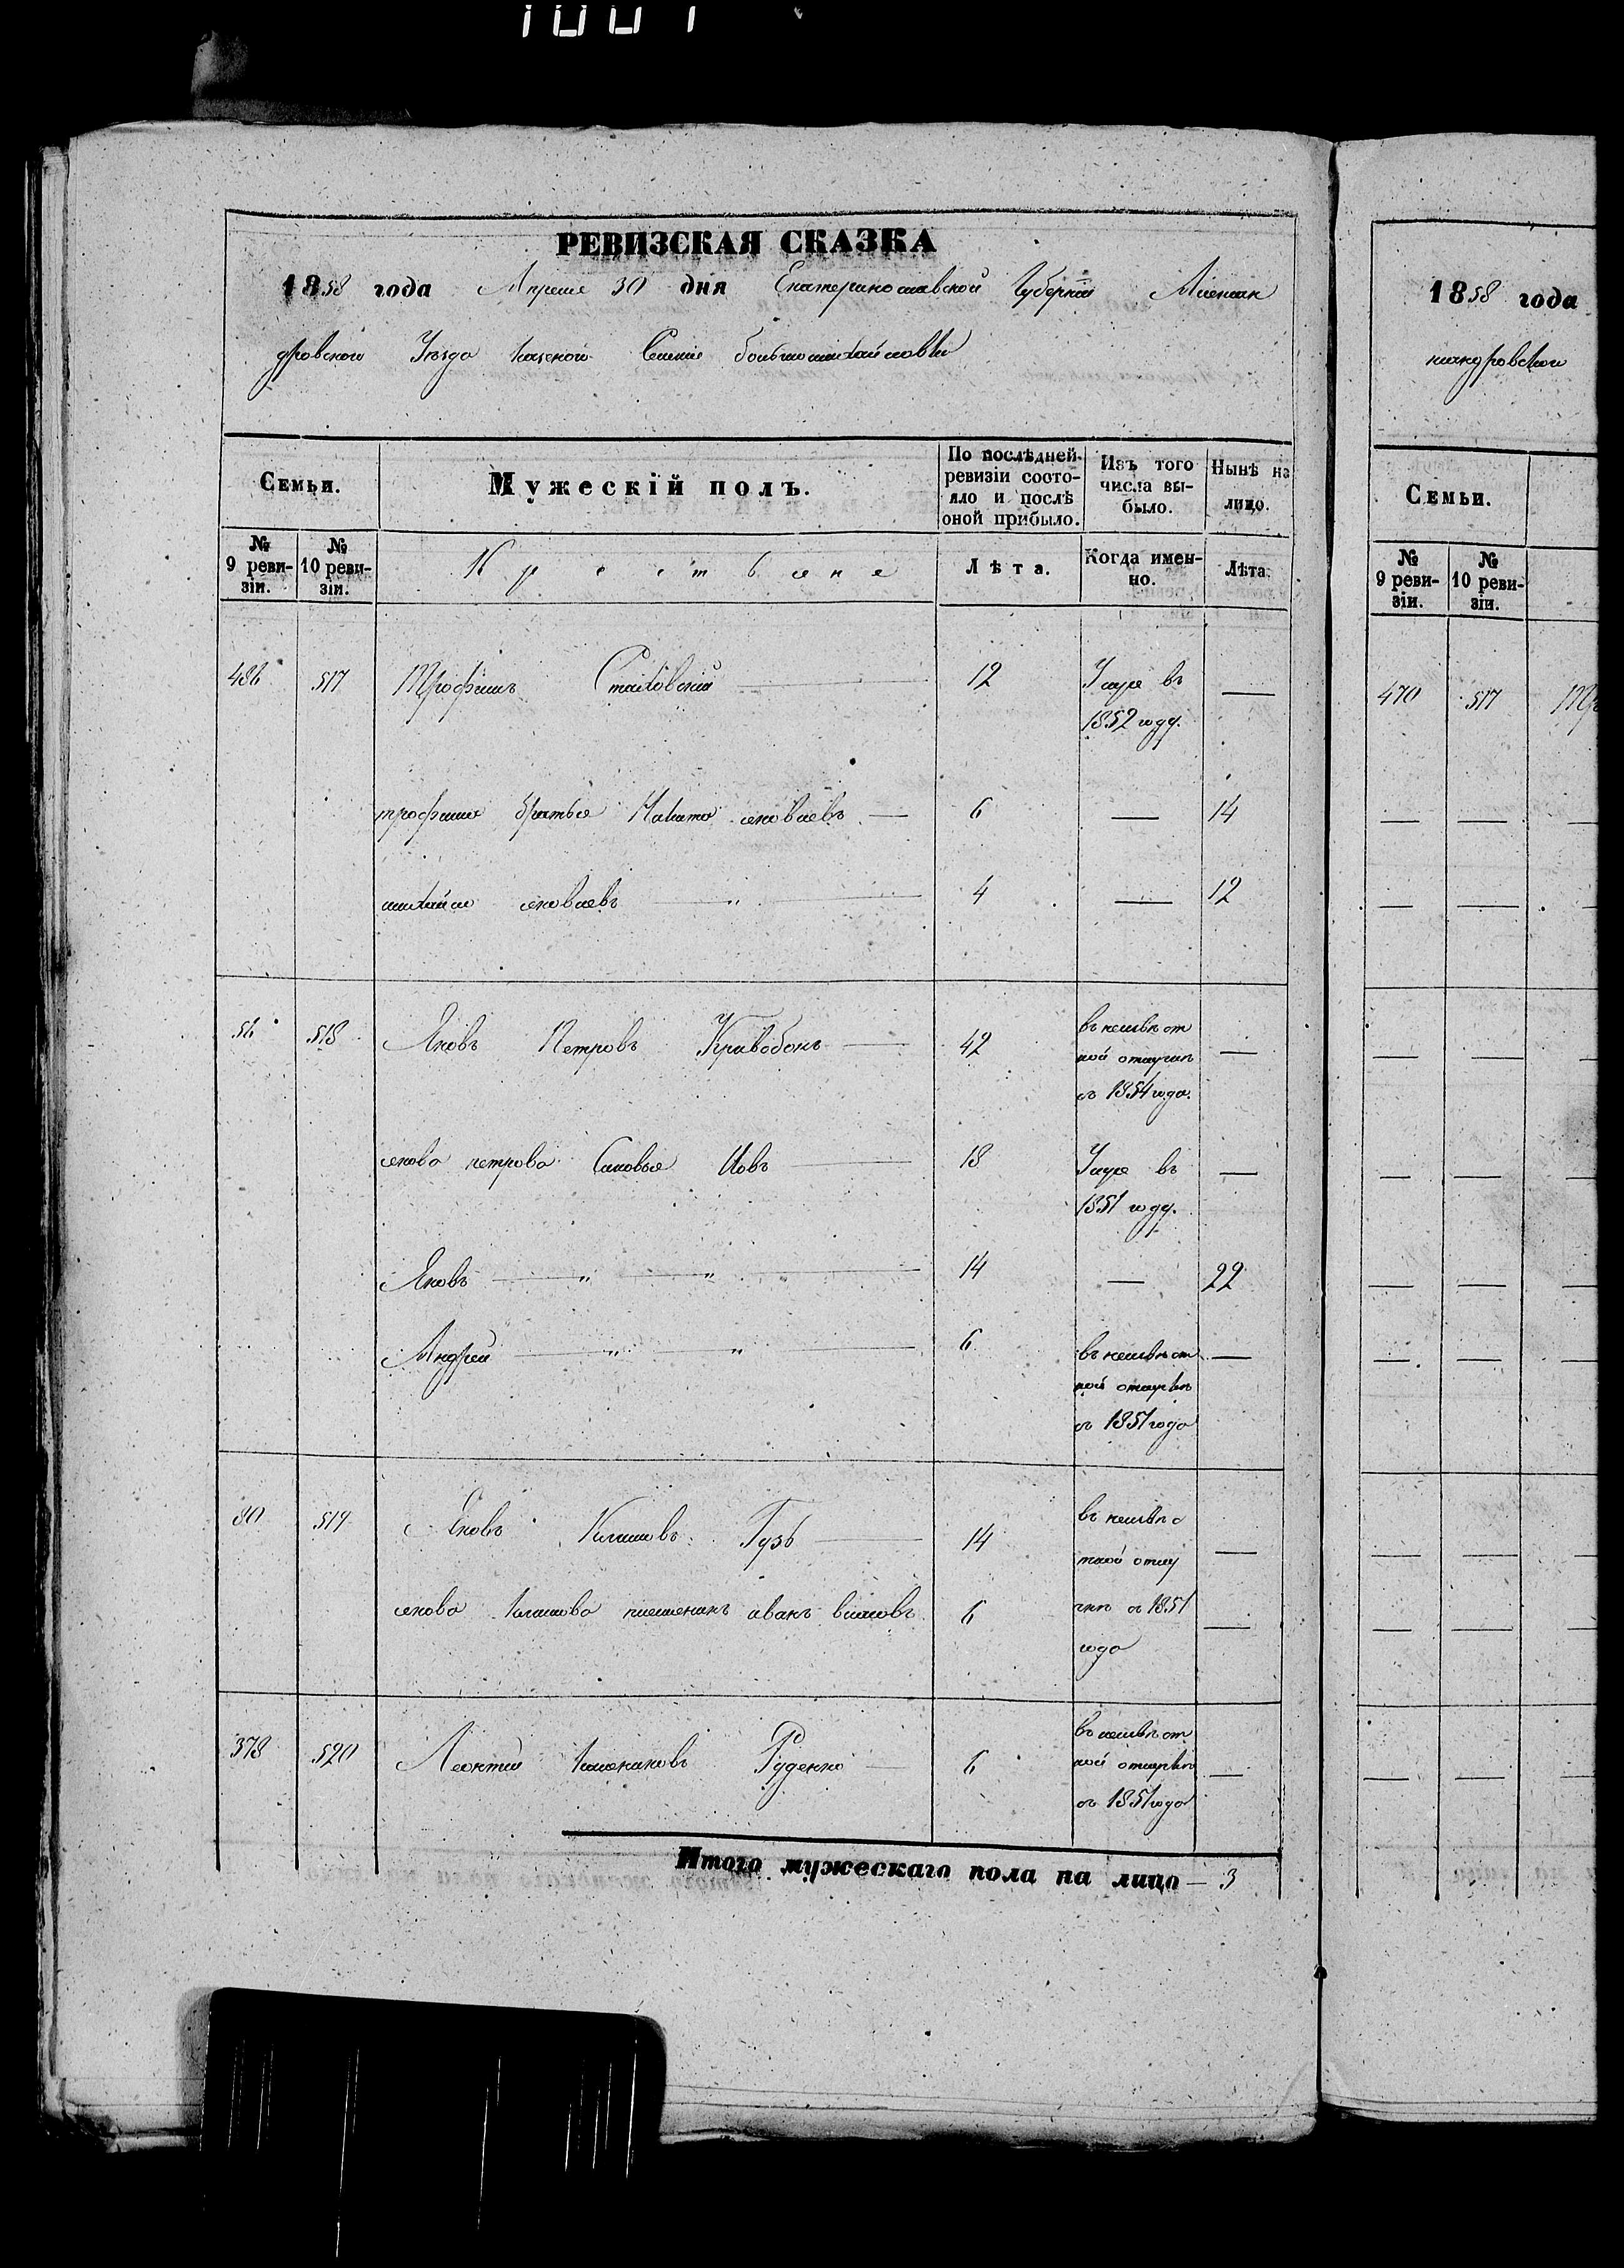 РЕВИЗСКАЯ СКАЗКА
1858 года Апреля 30 дня Екатеринославской Губернии Алексан
дровского Уезда
Семьи.
Мужескій полъ.
По послѣдней ревизіи состояло и послѣ оной прибыло.
Изъ того числа выбыло.
Нынѣ на лицо.
№ 9 ревизіи.
№ 10 ревизіи.
Крестьяне
Лѣта.
Когда именно.
Лѣта.
486 517 Трофимъ 12 Умре въ —
1852 году.
трофима братья Никита яковлевъ — 6 — 14
михайло яковлевъ — " — 4 — 12
56 518 Яковъ Петровъ Кривобокъ — 42 въ неизвѣст —
ной отлучкѣ
съ 1854 года.
якова петрова Сыновья Иовъ — 18 Умре въ —
1851 году.
Яковъ — " — " — 14 — 22
Андрей — " — " — 6 въ неизвѣст —
ной отлучкѣ
съ 1851 года
80 519 Яковъ Климовъ Гузь — 14 въ неизвѣс —
тной отлу
якова климова племеникъ иванъ 6 чкѣ съ 1851 —
года
378 520 Леонтий Руденко — 6 въ неизвѣст
ной отлучкѣ —
съ 1851 года
Итого мужескаго пола на лицо — 3
1858 года
ксандровского
Семьи.
№ 9 ревизіи.
№ 10 ревизіи.
470 517